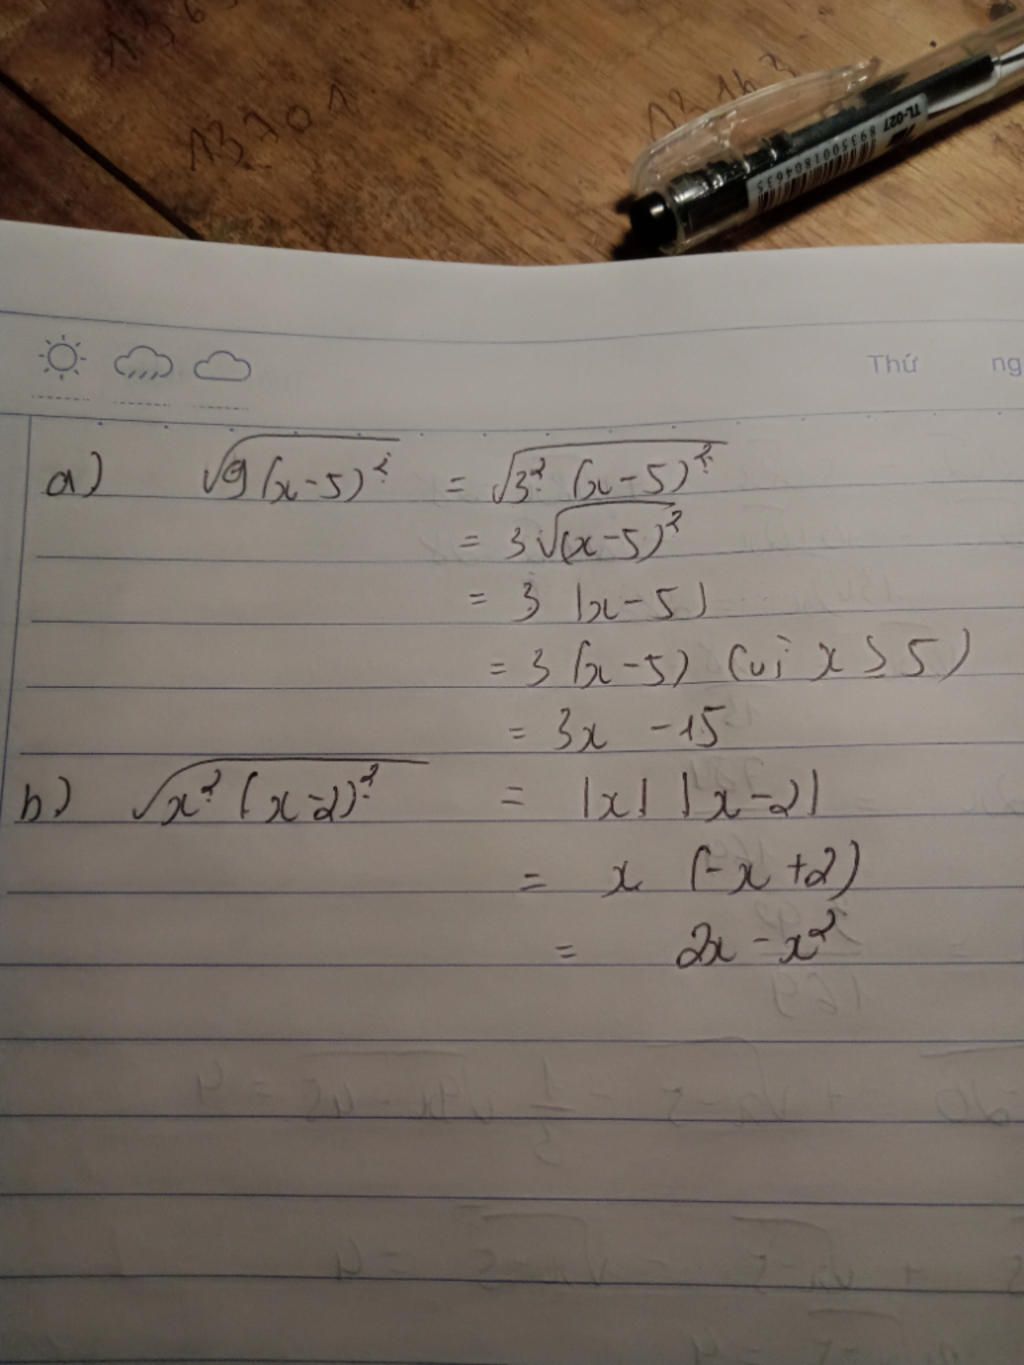 13701
13143
TL-027
8935001804635
Thứ ng
a) √9(x-5)² = √3² (x-5)²
= 3√(x-5)²
= 3 |x-5|
= 3(x-5) (vì x ≥ 5)
= 3x - 15
b) √x² (x-2)² = |x| |x-2|
= x (-x+2)
= 2x - x²